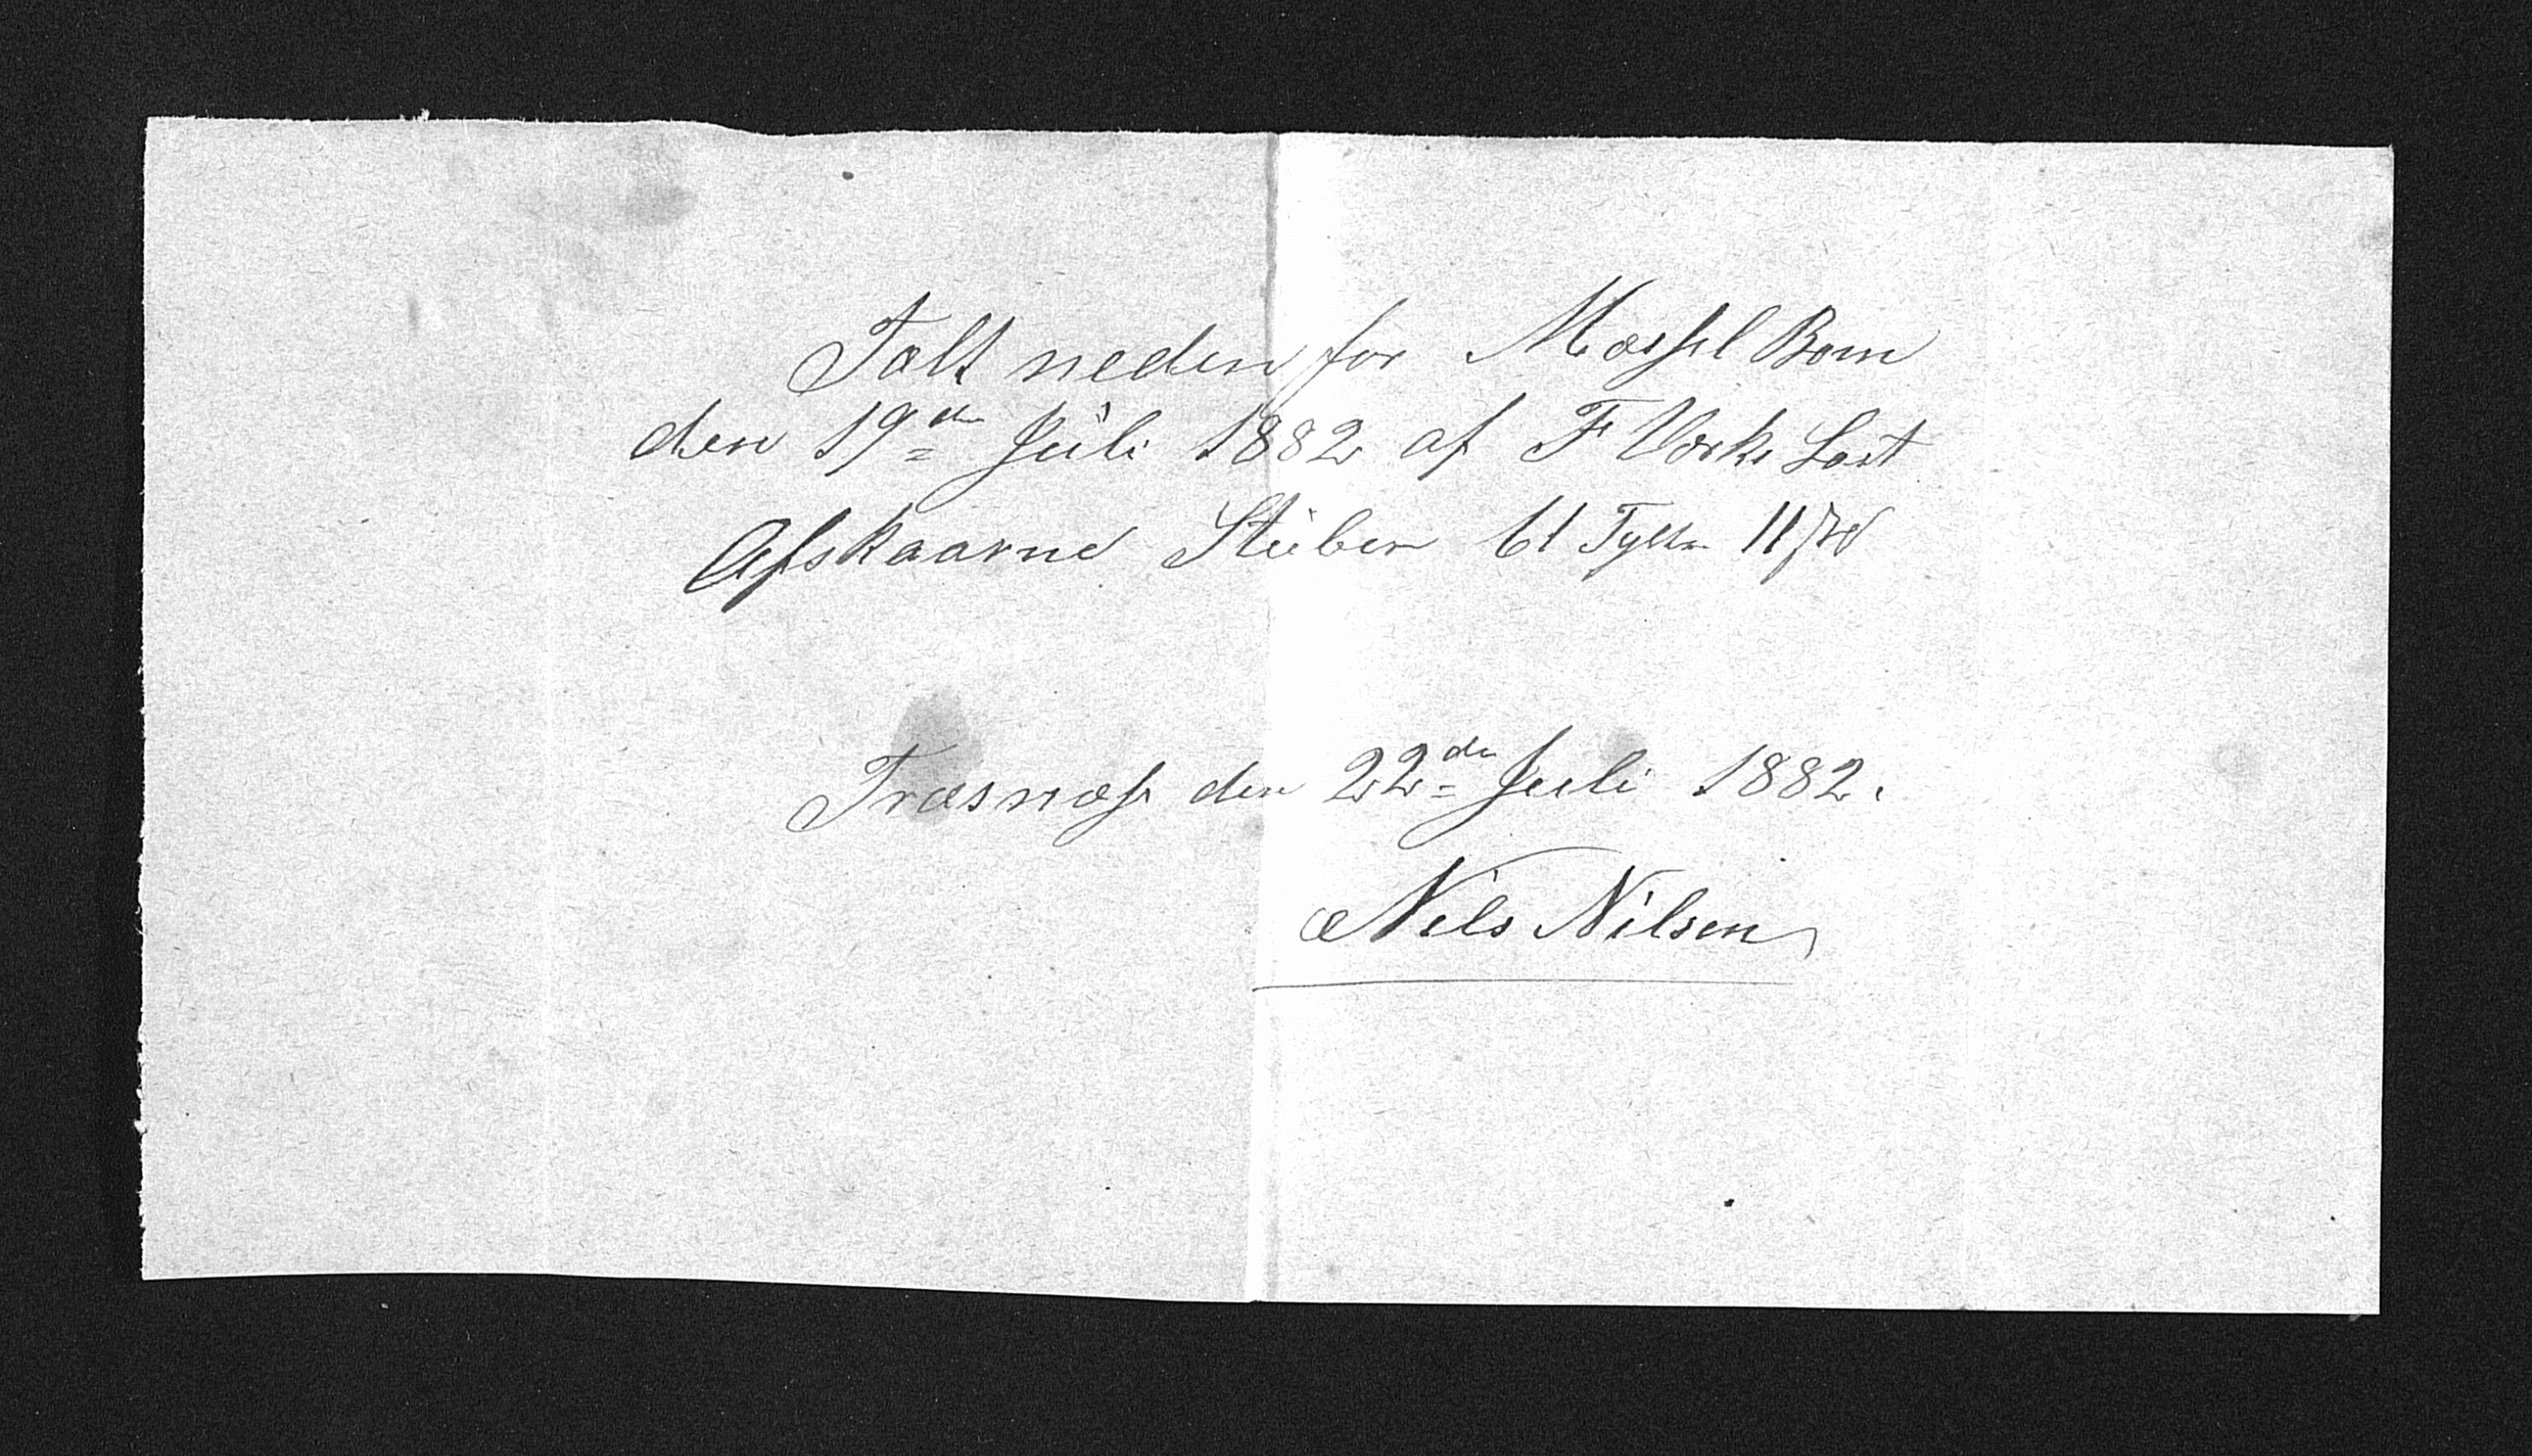 Talt neden for Mæssel Bom
den 19de Júli 1882 af F Værks Last
Afskaarne Stüber 61 Tylter 11
Træsnæs den 22de Juli 1882.
Niels Nilsen